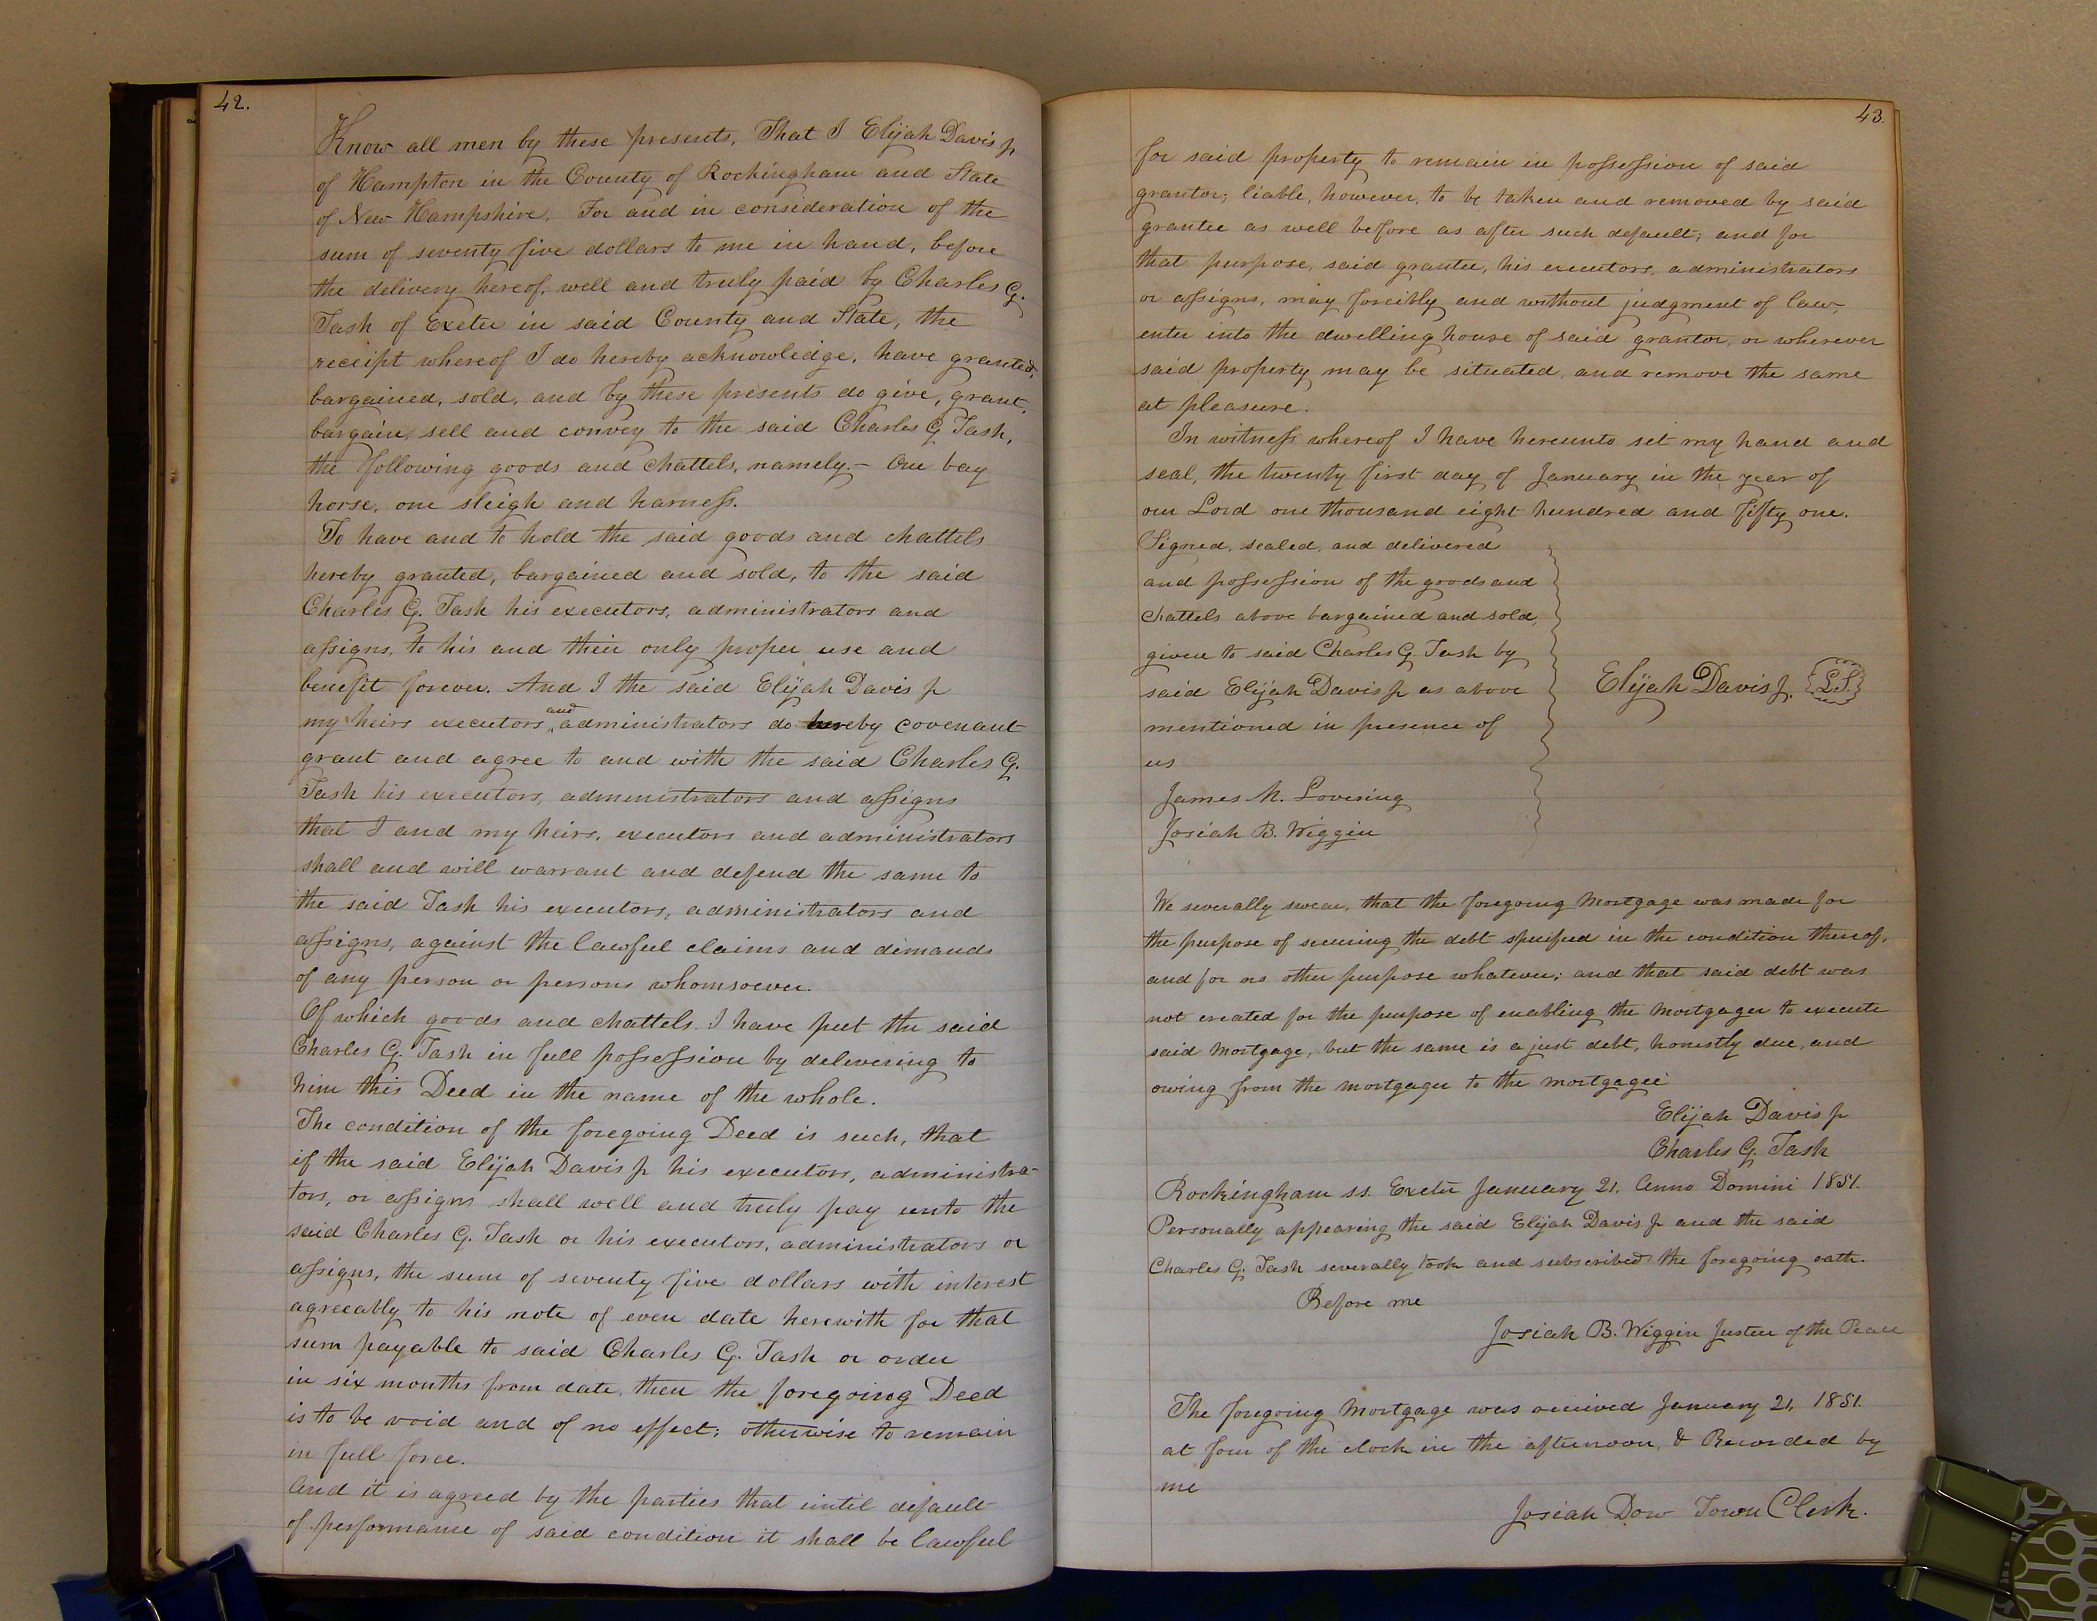 42.
Know all men by these presents, That I Elijah Davis Jr
of Hampton in the County of Rockingham and State
of New Hampshire. For and in consideration of the
sum of seventy five dollars to me in hand, before
the delivery hereof, well and truly paid by Charles G.
Tash of Exeter in said County and State, the
receipt whereof I do hereby acknowledge, have granted,
bargained, sold, and by these presents do give, grant,
bargain, sell and convey to the said Charles G. Tash,
the following goods and chattels, namely.- One bay
horse, one sleigh and harness.
To have and to hold the said goods and chattels
hereby granted, bargained and sold, to the said
Charles G. Tash his executors, administrators and
assigns, to his and their only proper use and
benefit forever. And I the said Elijah Davis Jr
my heirs executors, and administrators do hereby covenant
grant and agree to and with the said Charles G.
Tash his executors, administrators and assigns
that I and my heirs, executors and administrators
shall and will warrant and defend the same to
the said Tash his executors, administrators and
assigns, against the lawful claims and demands
of any person or persons whomsoever.
Of which goods and chattels I have put the said
Charles G. Tash in full possession by delivering to
him this Deed in the name of the whole.
The condition of the foregoing Deed is such, that
if the said Elijah Davis Jr his executors, administra-
tors, or assigns shall well and truly pay unto the
said Charles G. Tash or his executors, administrators or
assigns, the sum of seventy five dollars with interest
agreeably to his note of even date herewith for that
sum payable to said Charles G. Tash or order
in six months from date, then the foregoing Deed
is to be void and of no effect; otherwise to remain
in full force.
And it is agreed by the parties that until default
of performance of said condition it shall be lawful
43.
for said property to remain in possession of said
grantor; liable, however, to be taken and removed by said
grantee as well before as after such default; and for
that purpose, said grantee, his executors, administrators
or assigns, may forcibly and without judgment of law,
enter into the dwelling house of said grantor, or wherever
said property may be situated, and remove the same
at pleasure.
In witness whereof I have hereunto set my hand and
seal, the twenty first day of January in the year of
our Lord one thousand eight hundred and fifty one.
Signed, sealed, and delivered
and possession of the goods and
chattels above bargained and sold,
given to said Charles G. Tash by
said Elijah Davis Jr as above
mentioned in presence of
us
Elijah Davis Jr. L.S.
James M. Lovering
Josiah B. Wiggin
We severally swear, that the foregoing mortgage was made for
the purpose of securing the debt specified in the condition thereof,
and for no other purpose whatever; and that said debt was
not created for the purpose of enabling the mortgager to execute
said mortgage, but the same is a just debt, honestly due, and
owing from the mortgager to the mortgagee
Elijah Davis Jr
Charles G. Tash
Rockingham ss. Exeter January 21, Anno Domini 1851.
Personally appearing the said Elijah Davis Jr and the said
Charles G. Tash severally took and subscribed the foregoing oath.
Before me
Josiah B. Wiggin Justice of the Peace
The foregoing mortgage was received January 21, 1851.
at four of the clock in the afternoon, & Recorded by
me
Josiah Dow Town Clerk.